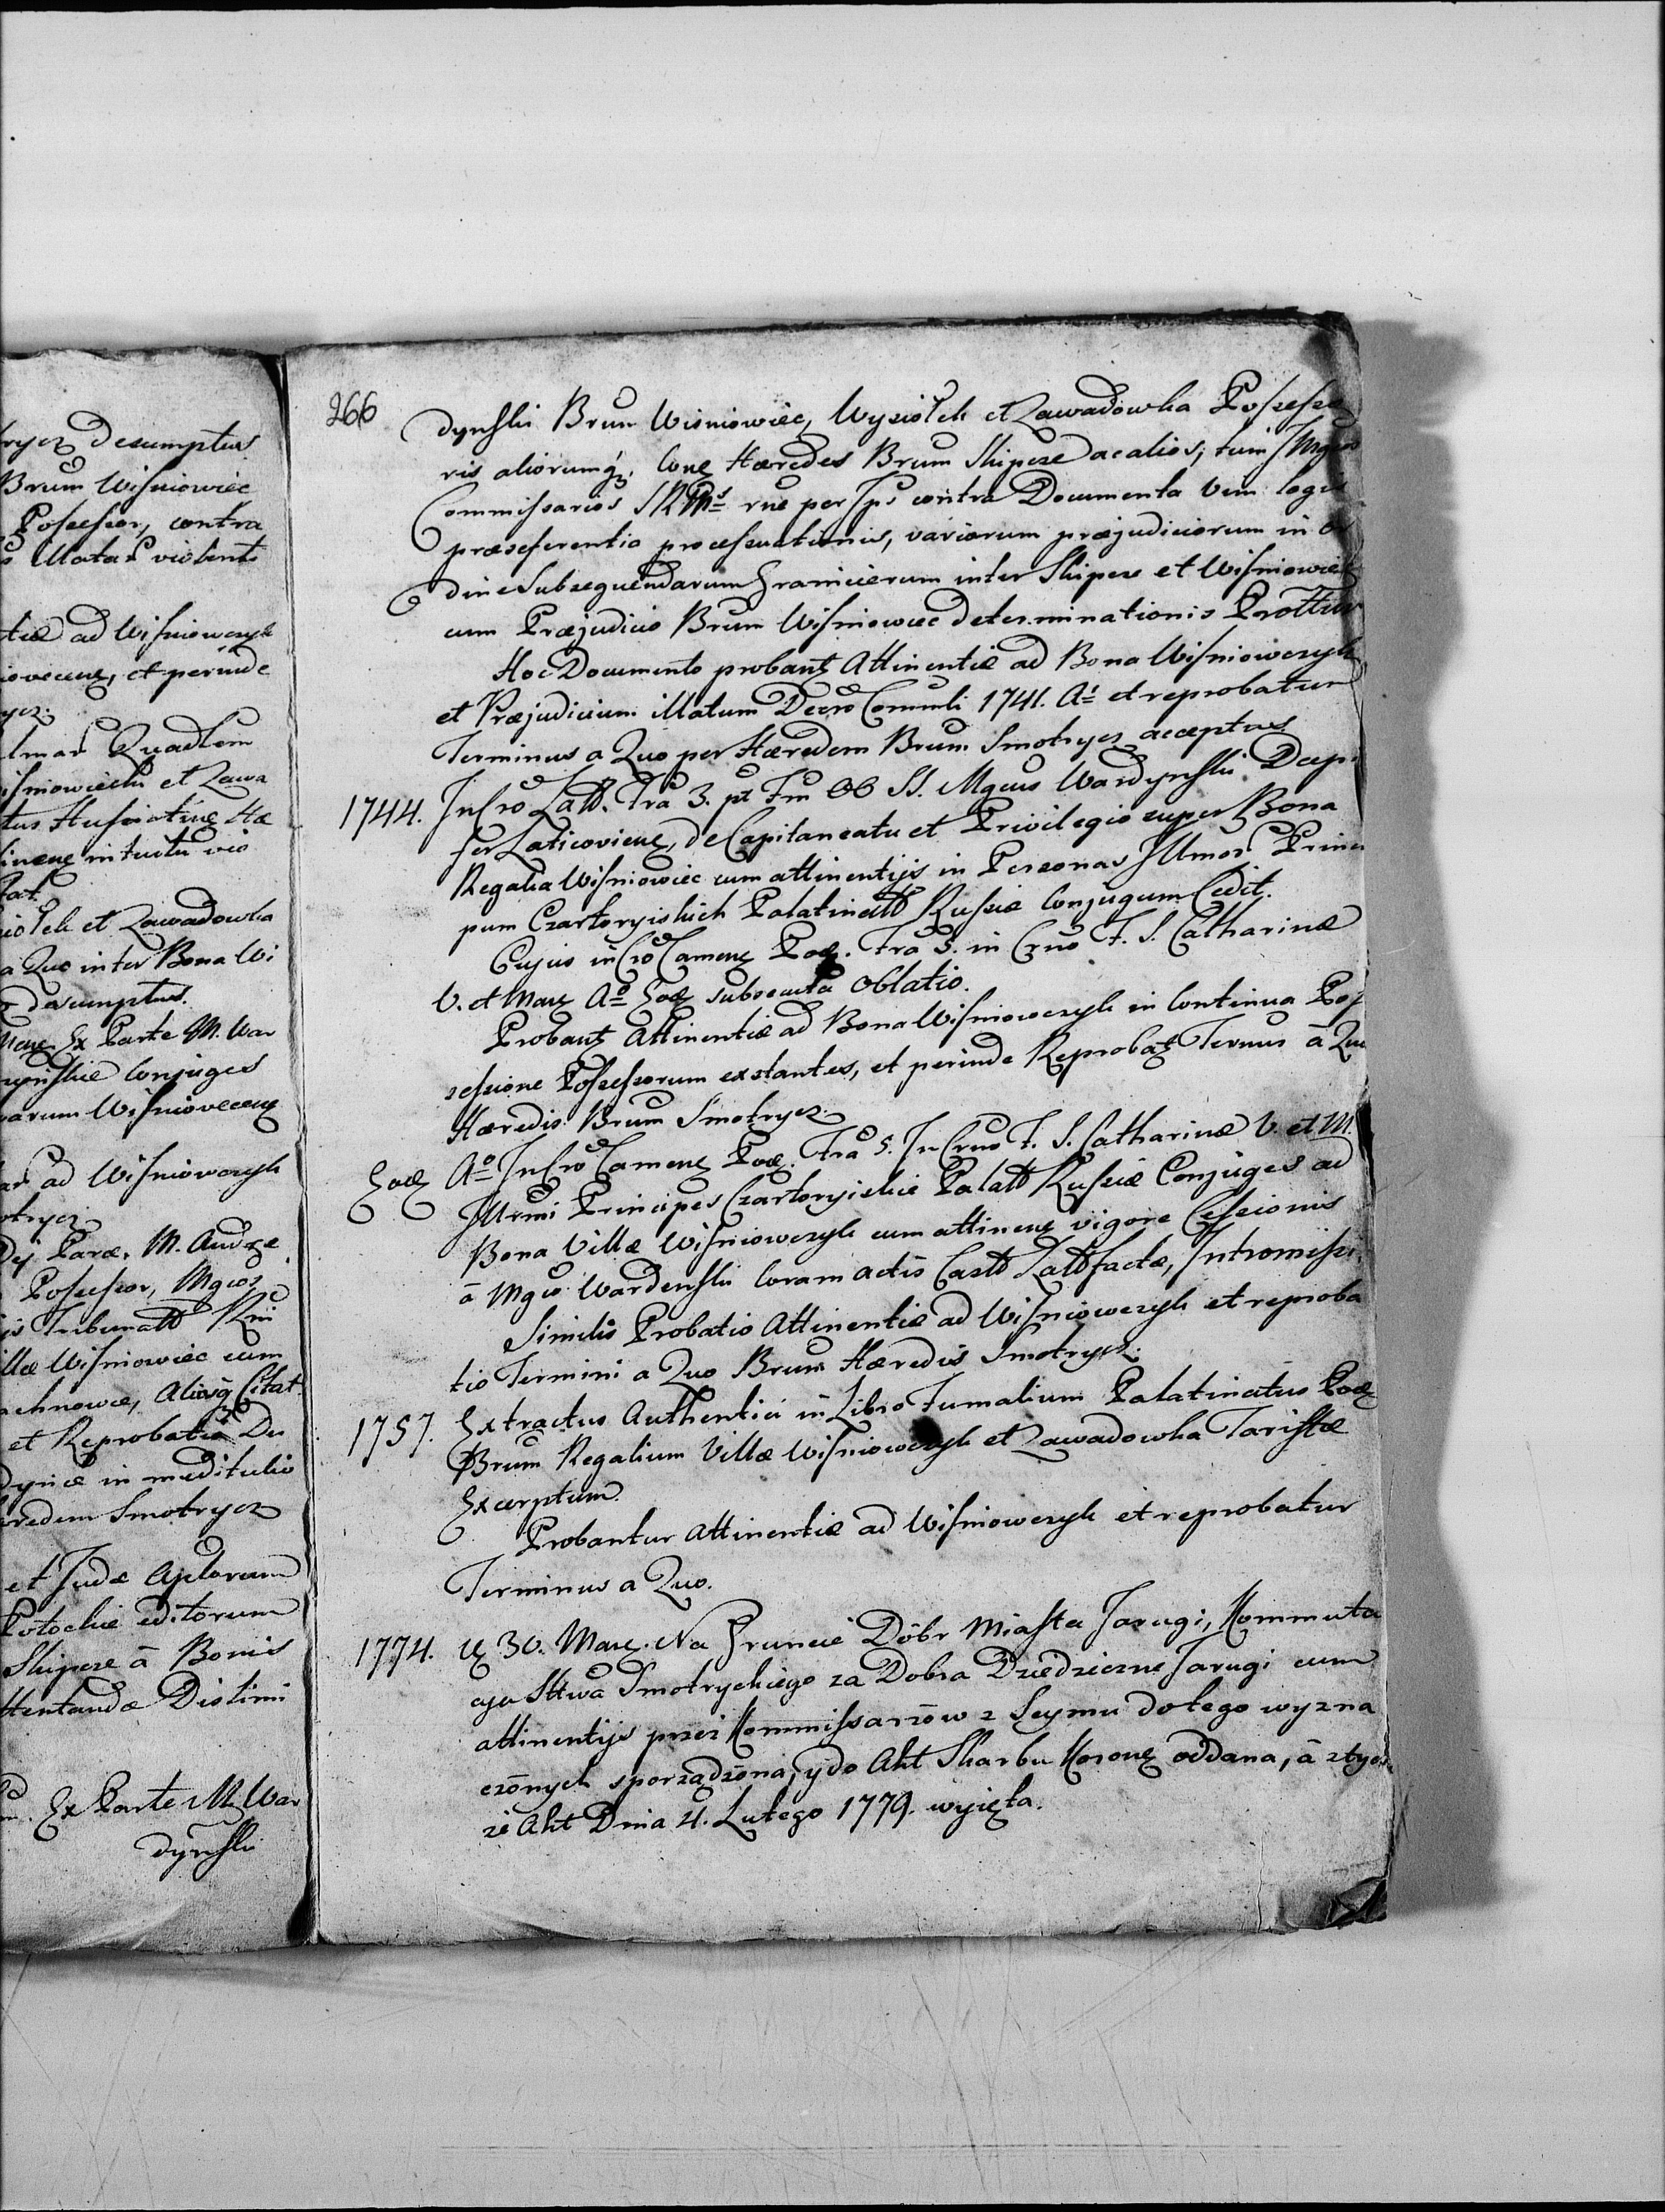 rycz desumptus
Brum Wiśniowiec
Possessor, contra
illatas violent
tiæ ad Wiśniowczyk
iovecens, et perinde
ycz.
Quadlem
iśniowiecki et Zawa
tus Husiatine Hæ
inens intuitu vio
tat.
iołek et Zawadowka
a Quo inter Bona Wi
desumptus.
Ex Parte M. War
ryńskie Conjuges
varum Wiśniovecens
ad Wiśniowczyk
otrycz
M. Andre
Possessor, Mgcos
is Tribunalis Rni
illæ Wiśniowiec cum
achnowce, aliosq Citat
et Reprobatio De
dynce in meditulio
eredem Smotrycz
et Judæ Aplorum
Potockie editorum
Skipcze à Bonis
ttentandæ Distimi
Ex Parte M. War
dyński
266
dyński Brum Wisniowiec, Wysiołek et Zawadowka Possesso
ris aliorumq. Cons Hæredes Brum Skipcze ac alios; tum Mgcos
Commissarios SRMs rne per Ips contra Documenta Vim legis
præseferentia processuationis, variorum præjudiciorum in or
dine Subsequendarum Granicierum inter Skipcze et Wiśniowiec
cum Præjudicio Brum Wiśniowiec determinationis Prottur
Hoc Documento probant Attinentiæ ad Bona Wiśniowczyk
et Præjudicium illatum Decro Commli 1741. Ai et reprobatur
Terminus a Quo per Hæredem Brum Smotrycz acceptus.
1744. In Cro Latt. Fra 3. pt Fm OO SS. Mgcus Wardyński Dapi
fer Laticoviens, de Capitaneatu et Privilegio super Bona
Regalia Wiśniowiec cum attinentijs in Personas Illmor Princi
pum Czartoryiskich Palatinatt Russiæ Conjugum Cedit.
Cujus in Cro Camene Pod. Fra 5. in Crno F. S. Catharinæ
V. et Mar Ao Eod subsecuta Oblatio.
Probant Attinentiæ ad Bona Wiśniowczyk in Continua Pos
sessione Possessorum exstantes, et perinde Reprobat Ternus à Quo
Hæredis Brum Smotrycz.
Eod Ao In Cro Camene Pod. Fra 5. In Crno F. S. Catharinæ V. et M.
Illrmi Principes Czartoryiskie Palatt Russiæ Conjuges ad
Bona Villæ Wiśniowczyk cum attinens vigore Cessionis
à Mgco Wardenski Coram actis Castt Latt factæ, Intromissi.
Similis Probatio Attinentiæ ad Wiśniowczyk et reproba
tio Termini a Quo Brum Hæredis Smotrycz.
1757. Extractus Authentici in Libro Fumalium Palatinatus Pod
Brum Regalium Villæ Wiśniowczyk et Zawadowka Tariffæ
Excerptum.
Probantur Attinentiæ ad Wiśniowczyk et reprobatur
Terminus a Quo.
1774. 30. Mar. Na Gruncie Dóbr Miasta Jarugi, Kommuta
cya Sttwa Smotryckiego za Dobra Dziedziczne Jarugi cum
attinentijs przez Kommissarzów z Seymu do tego wyzna
czonych sporządzona, y do Akt Skarbu Korone oddana, à z tych
że Akt Dnia 4. Lutego 1779. wyięta.